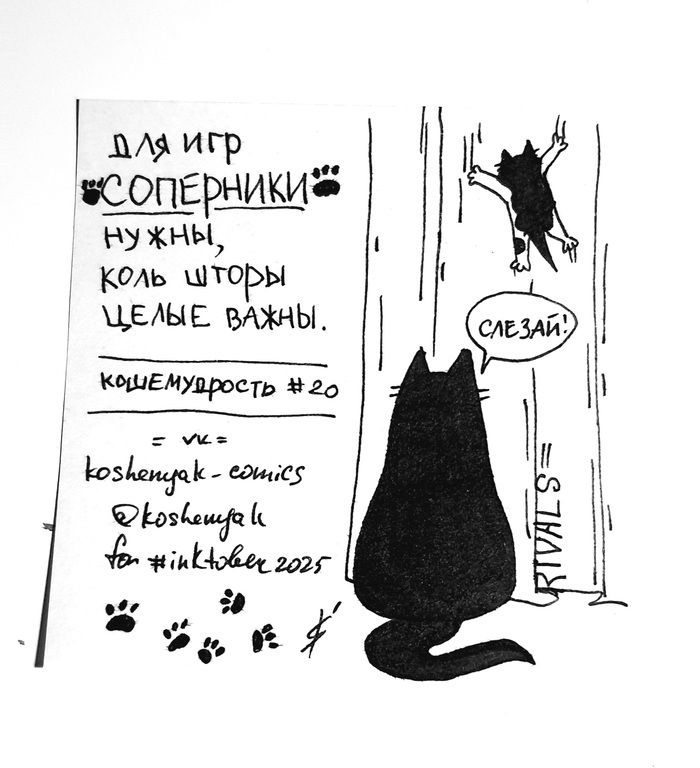 для игр
СОПЕРНИКИ
нужны,
коль шторы
целые важны.
кошемудрость #20
= vk =
koshenyak-comics
@koshenyak
for #inktober 2025
СЛЕЗАЙ!
RIVALS=